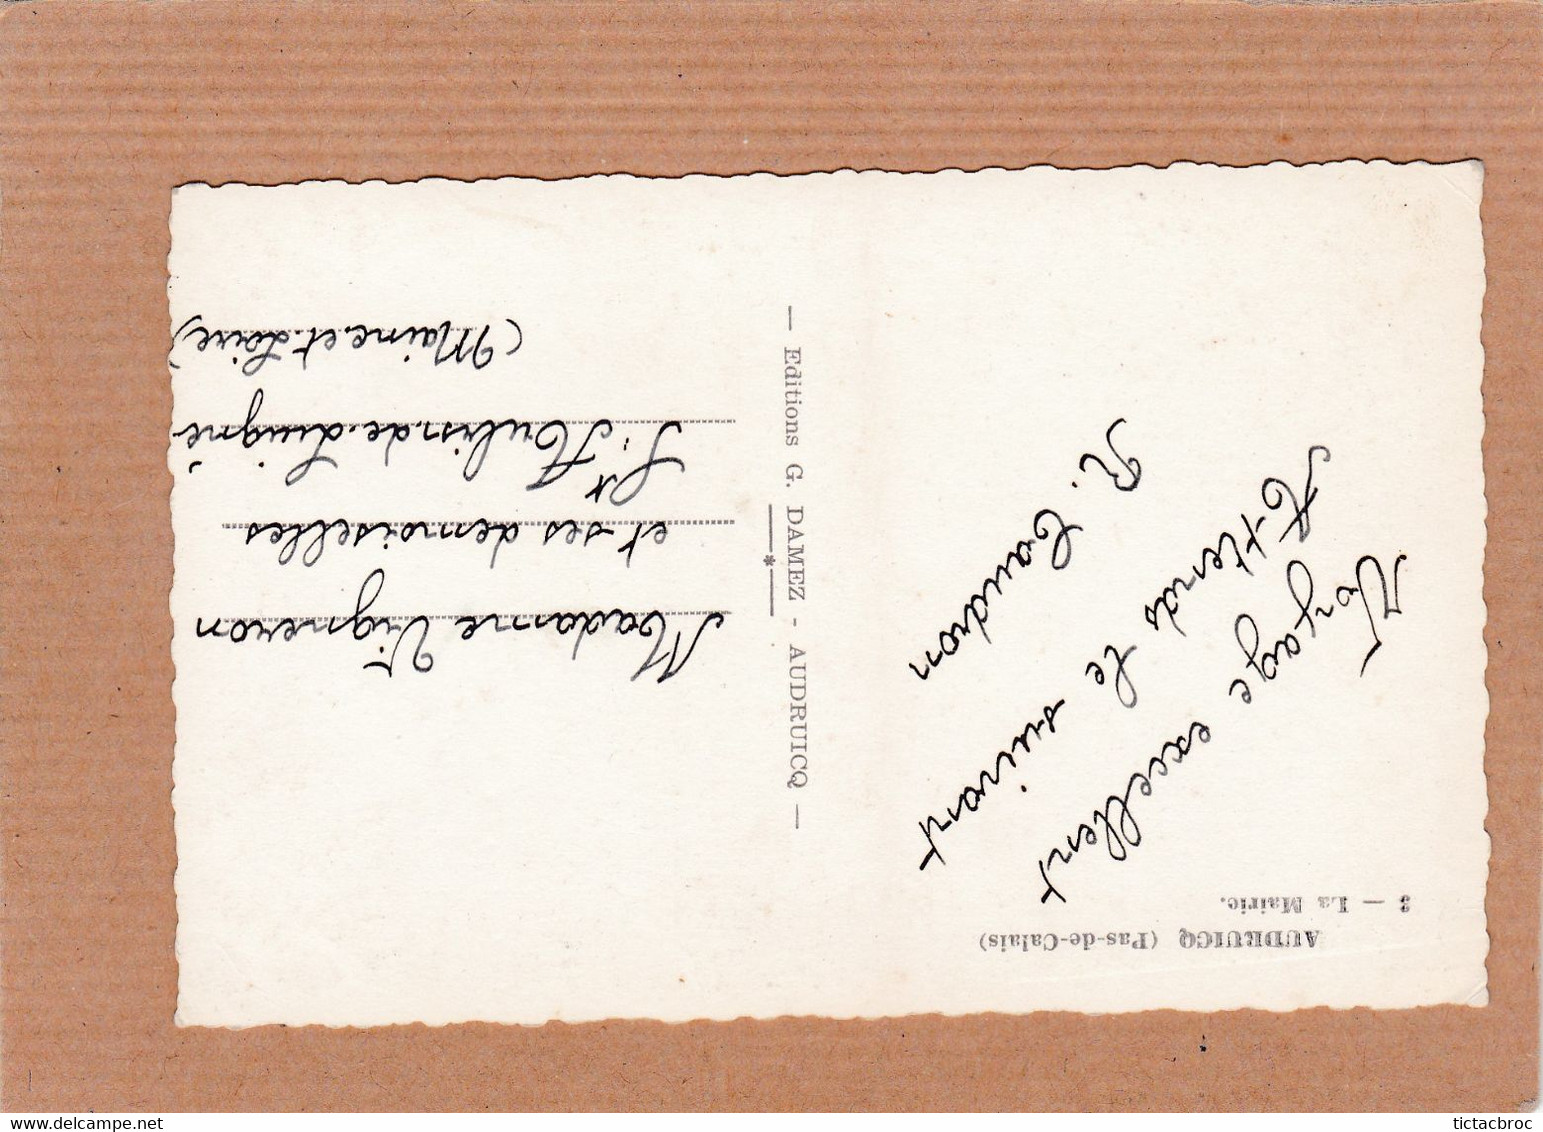 AUDRUICQ (Pas-de-Calais)
3 — La Mairie.
Voyage excellent
Attends le suivant
R. Caudron
— Editions G. DAMEZ - AUDRUICQ —
Madame Vigneron
et ses demoiselles
St Aubin.de.Luigné
(Maine.et.Loire)
www.delcampe.net
tictacbroc